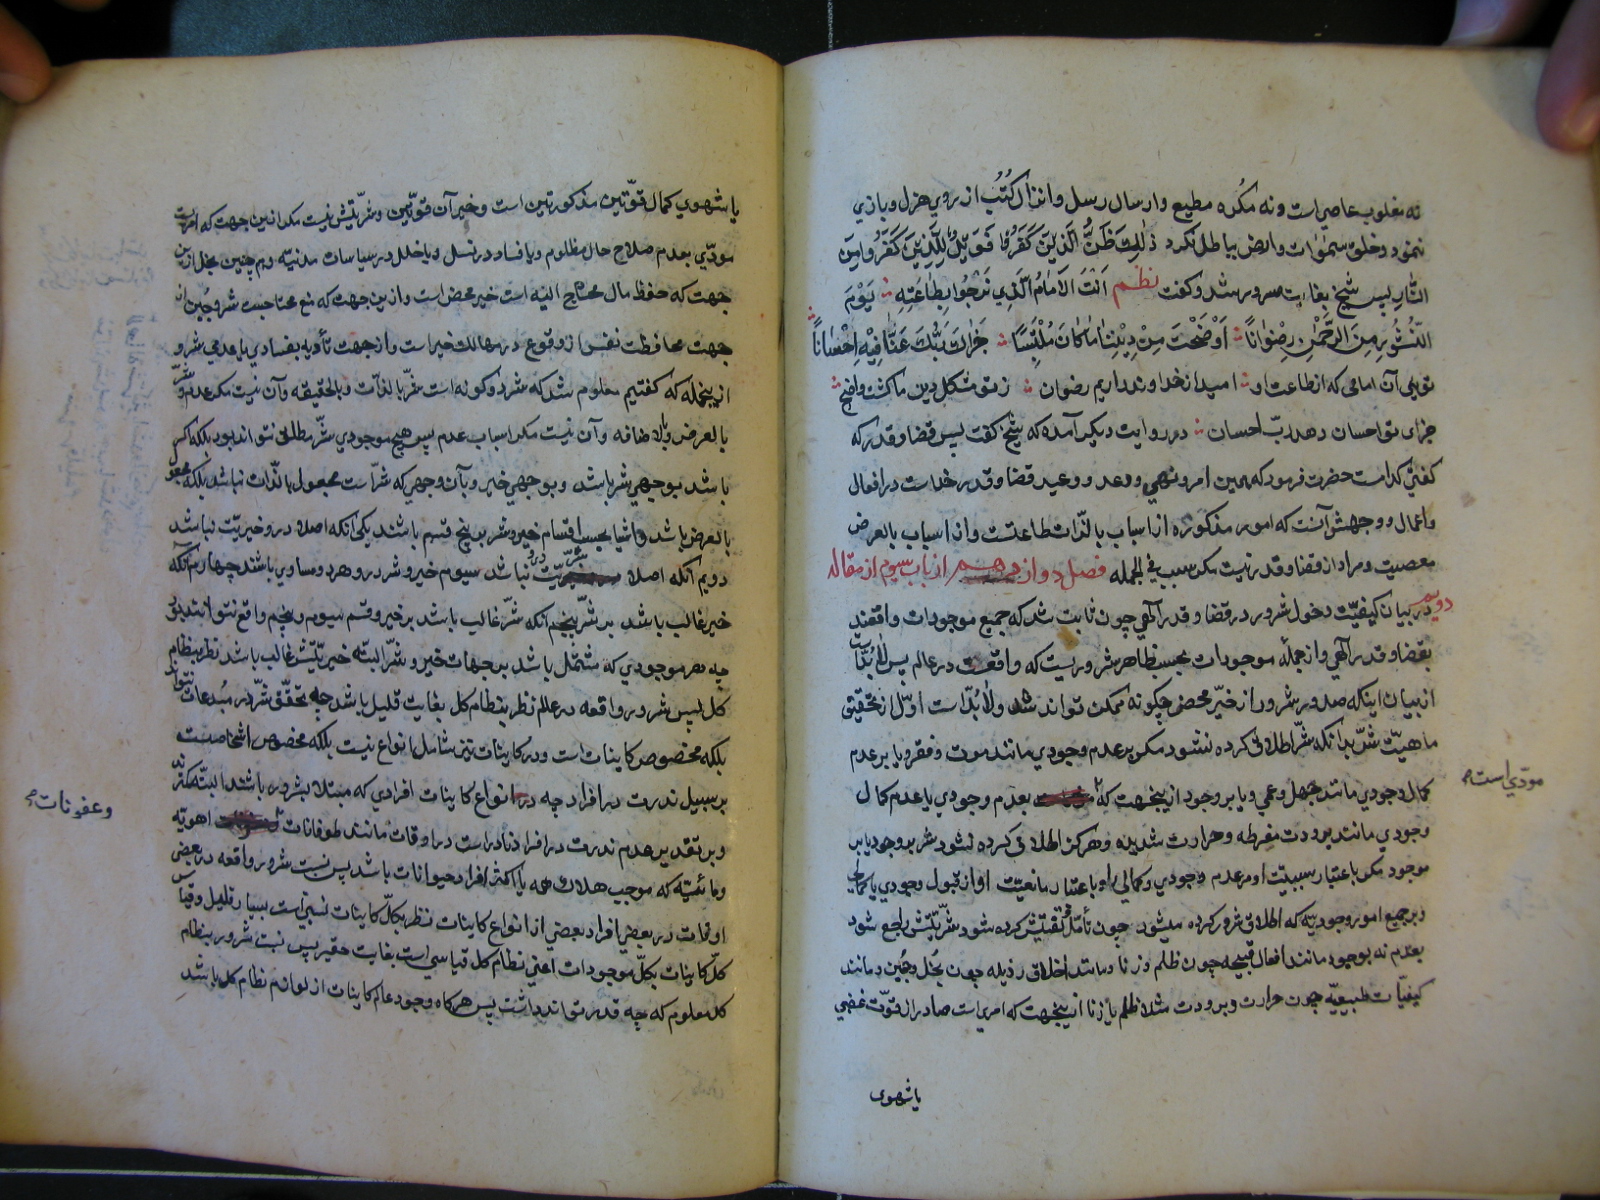 نه مغلوب عاصی است و نه مکره مطیع و ارسال رسل و انزال کتب از روی هزل و بازی
ننمود و خلق سموات و ارض بباطل نکرد ذٰلِكَ ظَنُّ الَّذِينَ كَفَرُوا فَوَيْلٌ لِلَّذِينَ كَفَرُوا مِنَ
النَّارِ پس شیخ بغایت مسرور شد و گفت نظم اَنْتَ الاِمَامُ الَّذِي نَرْجُوا بِطَاعَتِهِ يَوْمَ
النُّشُورِ مِنَ الرَّحْمٰنِ رِضْوَانًا اَوْضَحْتَ مِنْ دِينِنَا مَا كَانَ مُلْتَبِسًا جَزَاكَ رَبُّكَ عَنَّا فِيهِ اِحْسَانًا
تویی آن امامی که از طاعت او امید از خداوند داریم رضوان ز تو مشکل دین ما گشت واضح
جزای تو احسان دهد ربّ احسان در روایت دیگر آمده که شیخ گفت پس قضا و قدر که
گفتی کدامست حضرت فرمود که همین امر و نهی و وعد و وعید قضا و قدر خداست در افعال
و اعمال و وجهش آنست که امور مذکوره از اسباب بالذّات طاعتست و از اسباب بالعرض
معصیت و مراد از قضا و قدر نیست مگر سبب فی الجمله فصل دوازدهم از باب سیوم از مقاله
دویم در بیان کیفیّت دخول شرور در قضا و قدر الهی چون ثابت شد که جمیع موجودات واقعند
بقضا و قدر الهی و از جملهٔ موجودات بحسب ظاهر شروریست که واقعست در عالم پس لابدّ است
از بیان اینکه صدور شرور از خیر محض چگونه ممکن تواند شد و لابدّ است اوّل از تحقیق
ماهیّت شرّ بدانکه شرّ اطلاق کرده نشود مگر بر عدم وجودی مانند موت و فقر و یا بر عدم
کمال وجودی مانند جهل و عمی و یا بر وجود از ینجهت که مودّی است بعدم وجودی یا عدم کمال
وجودی مانند برودت مفرطه و حرارت شدیده و هرگز اطلاق کرده نشود شر بر وجود یا بر
موجود مگر باعتبار سببیّت او مر عدم وجودی و کمالی را و باعتبار مانعیّت او از قبول وجودی یا کمالی
و بر جمیع امور وجودیّه که اطلاق شرور کرده میشود چون تأمّل و تفتیش کرده شود شرّیّتش راجع شود
بعدم نه بوجود مانند افعال قبیحه چون ظلم و زنا و مانند اخلاق رذیله چون بخل و جبن و مانند
کیفیّات طبیعیّه چون حرارت و برودت مثلا ظلم یا زنا از ینجهت که امری است صادر از قوّت غضبی
یا شهوی
مودّی است
یا شهوی کمال قوّتین مذکورتین است و خیر آن قوّتین و شرّیتش نیست مگر از ین جهت که امریست
مودّی بعدم صلاح حال مظلوم و یا فساد در نسل و یا خلل در سیاسات مدنیّه و همچنین بخل از ین
جهت که حفظ مال محتاج الیه است خیر محض است و از ین جهت که منع محتاجست شر و جبن از
جهت محافظت نفس از وقوع در مهالک خیر است و از جهت تأدیه بفسادی یا عدمی شر و
از ینجمله که گفتیم معلوم شد که شر دو گونه است شرّ بالذّات و بالحقیقه و آن نیست مگر عدم و شرّ
بالعرض و بالاضافه و آن نیست مگر اسباب عدم پس هیچ موجودی شرّ مطلق نتواند بود بلکه اگر شر
باشد بوجهی شر باشد و بوجهی خیر و بآن وجهی که شرّ است مجعول بالذّات نباشد بلکه مجعول
بالعرض باشد و اشیا بحسب اقسام خیر و شر بر پنج قسم باشند یکی آنکه اصلا در و خیریّت نباشد
دویم آنکه اصلا شرّیّت در و نباشد سیوم خیر و شر در و هر دو مساوی باشند چهارم آنکه
خیر غالب باشد بر شرّ پنجم آنکه شرّ غالب باشد بر خیر و قسم سیوم و پنجم واقع نتوانند بود
چه هر موجودی که مشتمل باشد بر جهات خیر و شرّ البته خیریّتش غالب باشد نظر بنظام
کل پس شرور واقعه در عالم نظر بنظام کل بغایت قلیل باشد چه تحقّق شرّ در مبدعات نتواند
بلکه مخصوص کاینات است و در کاینات نیز شامل انواع نیست بلکه مخصوص اشخاصست
بر سبیل ندرت در افراد چه در انواع کاینات افرادی که مبتلا بشرور باشند البتّه کمتر
و بر تقدیر عدم ندرت در افراد نادر است در اوقات مانند طوفانات و عفونات اهویّه
و مائیّه که موجب هلاک همه یا اکثر افراد حیوانات باشد پس نسبت شرور واقعه در بعض
اوقات در بعض افراد بعضی از انواع کاینات نظر بکلّ کاینات نسبتی است بسیار قلیل و قیاس
کلّ کاینات بکلّ موجودات اعنی نظام کل قیاسی است بغایت حقیر پس نسبت شرور بنظام
کل معلوم که چه قدر تواند داشت پس هرگاه وجود عالم کاینات از لوازم نظام کل باشد
و عفونات